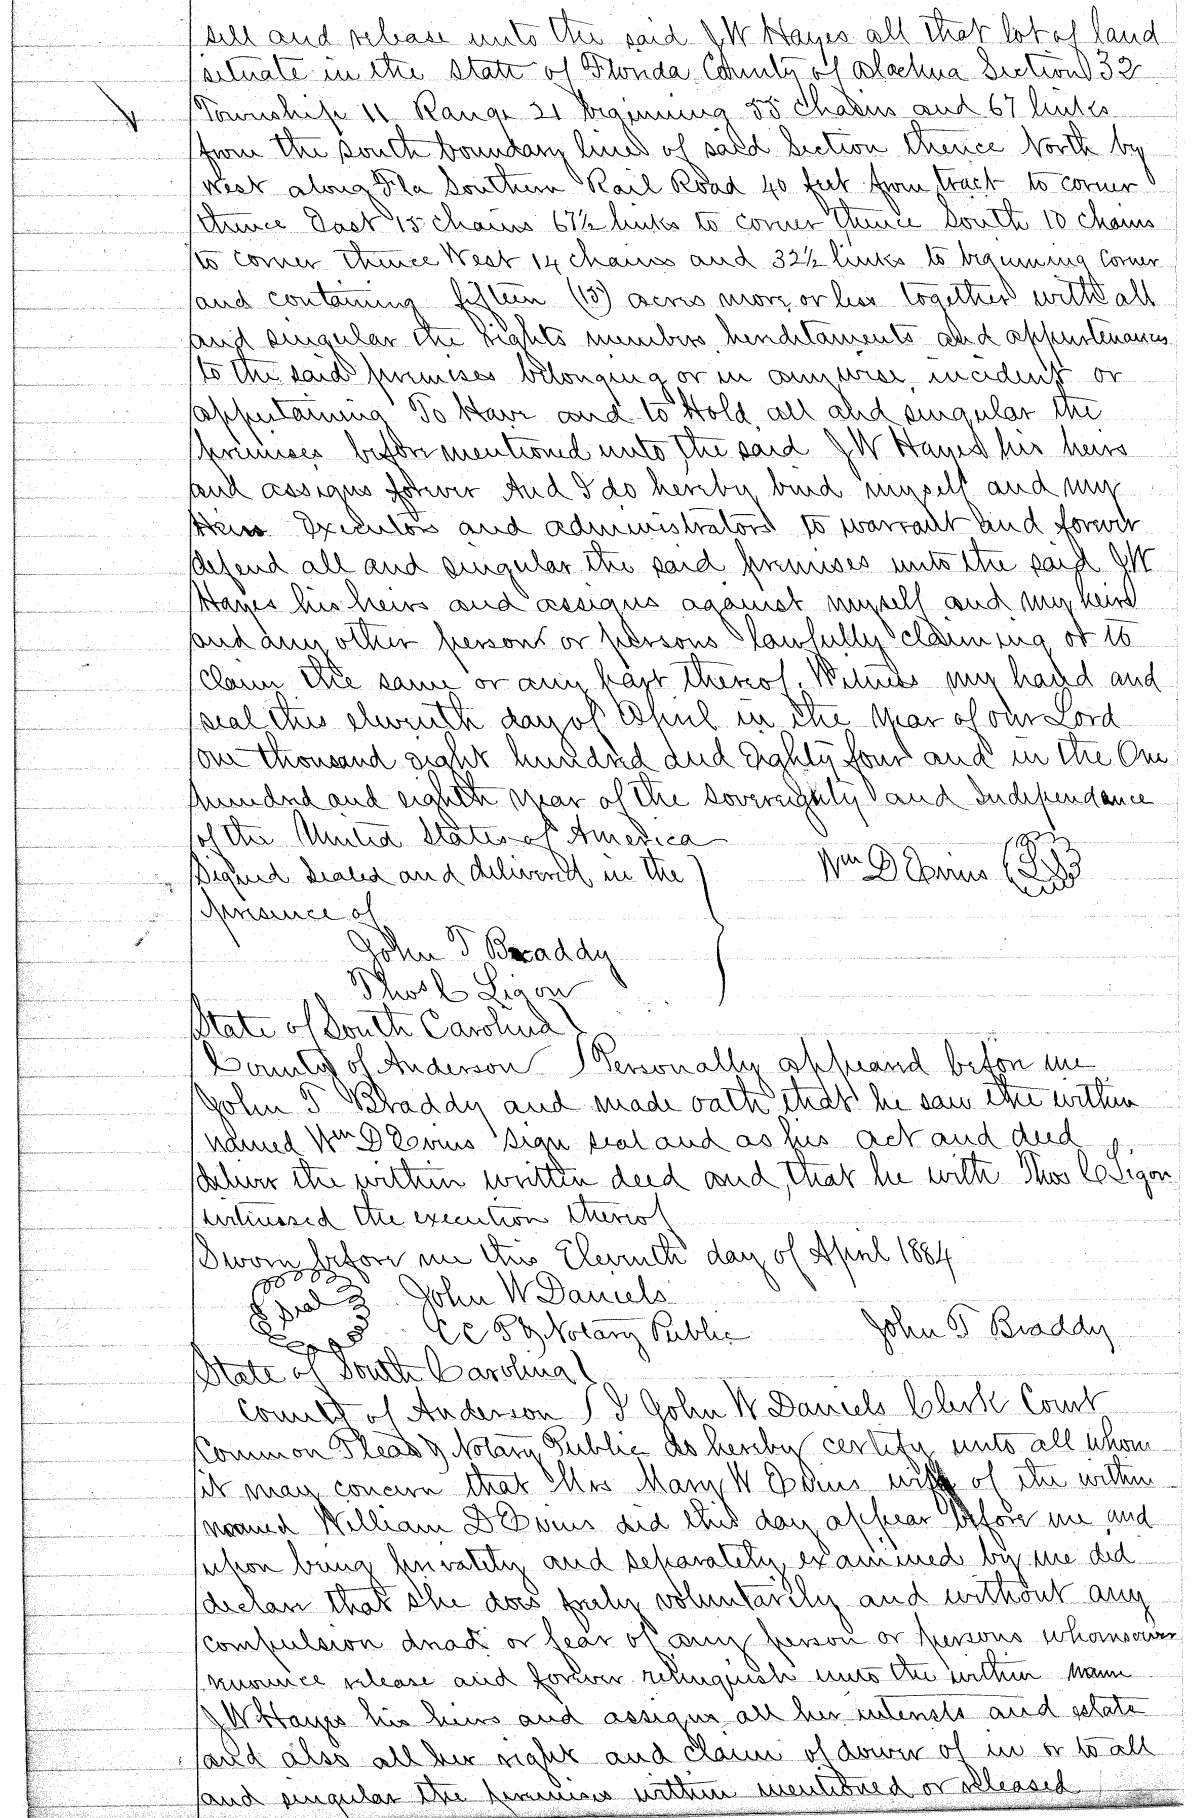 sell and release unto the said J W Hayes all that lot of land
situate in the State of Florida County of Alachua Section 32
Township 11 Range 21 beginning 55 chains and 67 links
from the South boundary line of said Section thence North by
West along Fla Southern Rail Road 40 feet from tract to corner
thence East 15 chains 67½ links to corner thence South 10 chains
to corner thence West 14 chains and 32½ links to beginning corner
and containing fifteen (15) acres more or less together with all
and singular the rights members hereditaments and appurtenances
to the said premises belonging or in anywise incident or
appertaining To Have and to Hold all and singular the
premises before mentioned unto the said J W Hayes his heirs
and assigns forever And I do hereby bind myself and my
Heirs Executors and administrators to warrant and forever
defend all and singular the said premises unto the said J W
Hayes his heirs and assigns against myself and my heirs
and any other person or persons lawfully claiming or to
claim the same or any part thereof. Witness my hand and
seal this eleventh day of April in the year of our Lord
one thousand eight hundred and Eighty four and in the One
hundred and eighth year of the sovereignty and Independence
of the United States of America
Signed Sealed and delivered in the Wm D Evins (LS)
presence of
John T Braddy
Thos C Ligon
State of South Carolina
County of Anderson Personally appeared before me
John T Braddy and made oath that he saw the within
named Wm D Evins sign seal and as his act and deed
deliver the within written deed and that he with Thos C Ligon
witnessed the execution thereof
Sworn before me this Eleventh day of April 1884
Seal John W Daniels
C C P & Notary Public John T Braddy
State of South Carolina
County of Anderson I John W Daniels Clerk Court
Common Pleas & Notary Public do hereby certify unto all whom
it may concern that Mrs Mary W Evins wife of the within
named William D Evins did this day appear before me and
upon being privately and separately examined by me did
declare that she does freely voluntarily and without any
compulsion dread or fear of any person or persons whomsoever
renounce release and forever relinquish unto the within name
J W Hayes his heirs and assigns all her interests and estate
and also all her right and claim of dower of in or to all
and singular the premises within mentioned or released